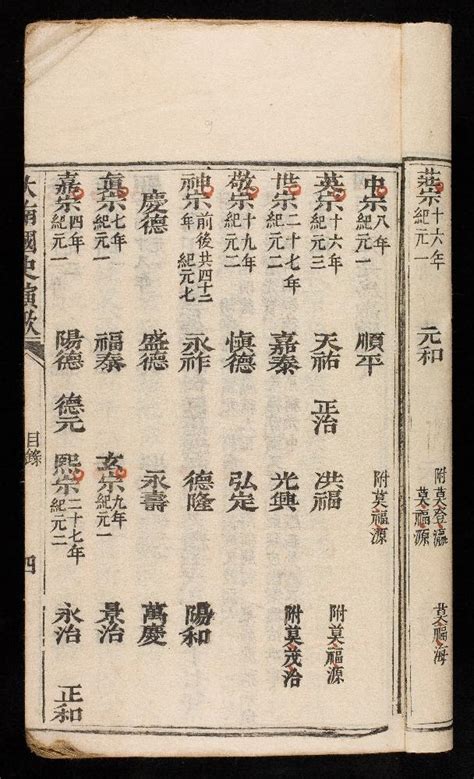 莊宗十六年紀元一 元和 附莫登瀛 莫福源 莫福海
中宗八年紀元一 順平 附莫福源
英宗十六年紀元三 天祐 正治 洪福 附莫福源
世宗二十七年紀元二 嘉泰 光興 附莫茂治
敬宗十九年紀元二 慎德 弘定
神宗前後共四十二年紀元七 永祚 德隆 陽和
慶德 盛德 永壽 萬慶
真宗七年紀元一 福泰 玄宗九年紀元一 景治
嘉宗四年紀元一 陽德 德元 熙宗二十七年紀元二 永治 正和
大南國史演歌 目錄 四